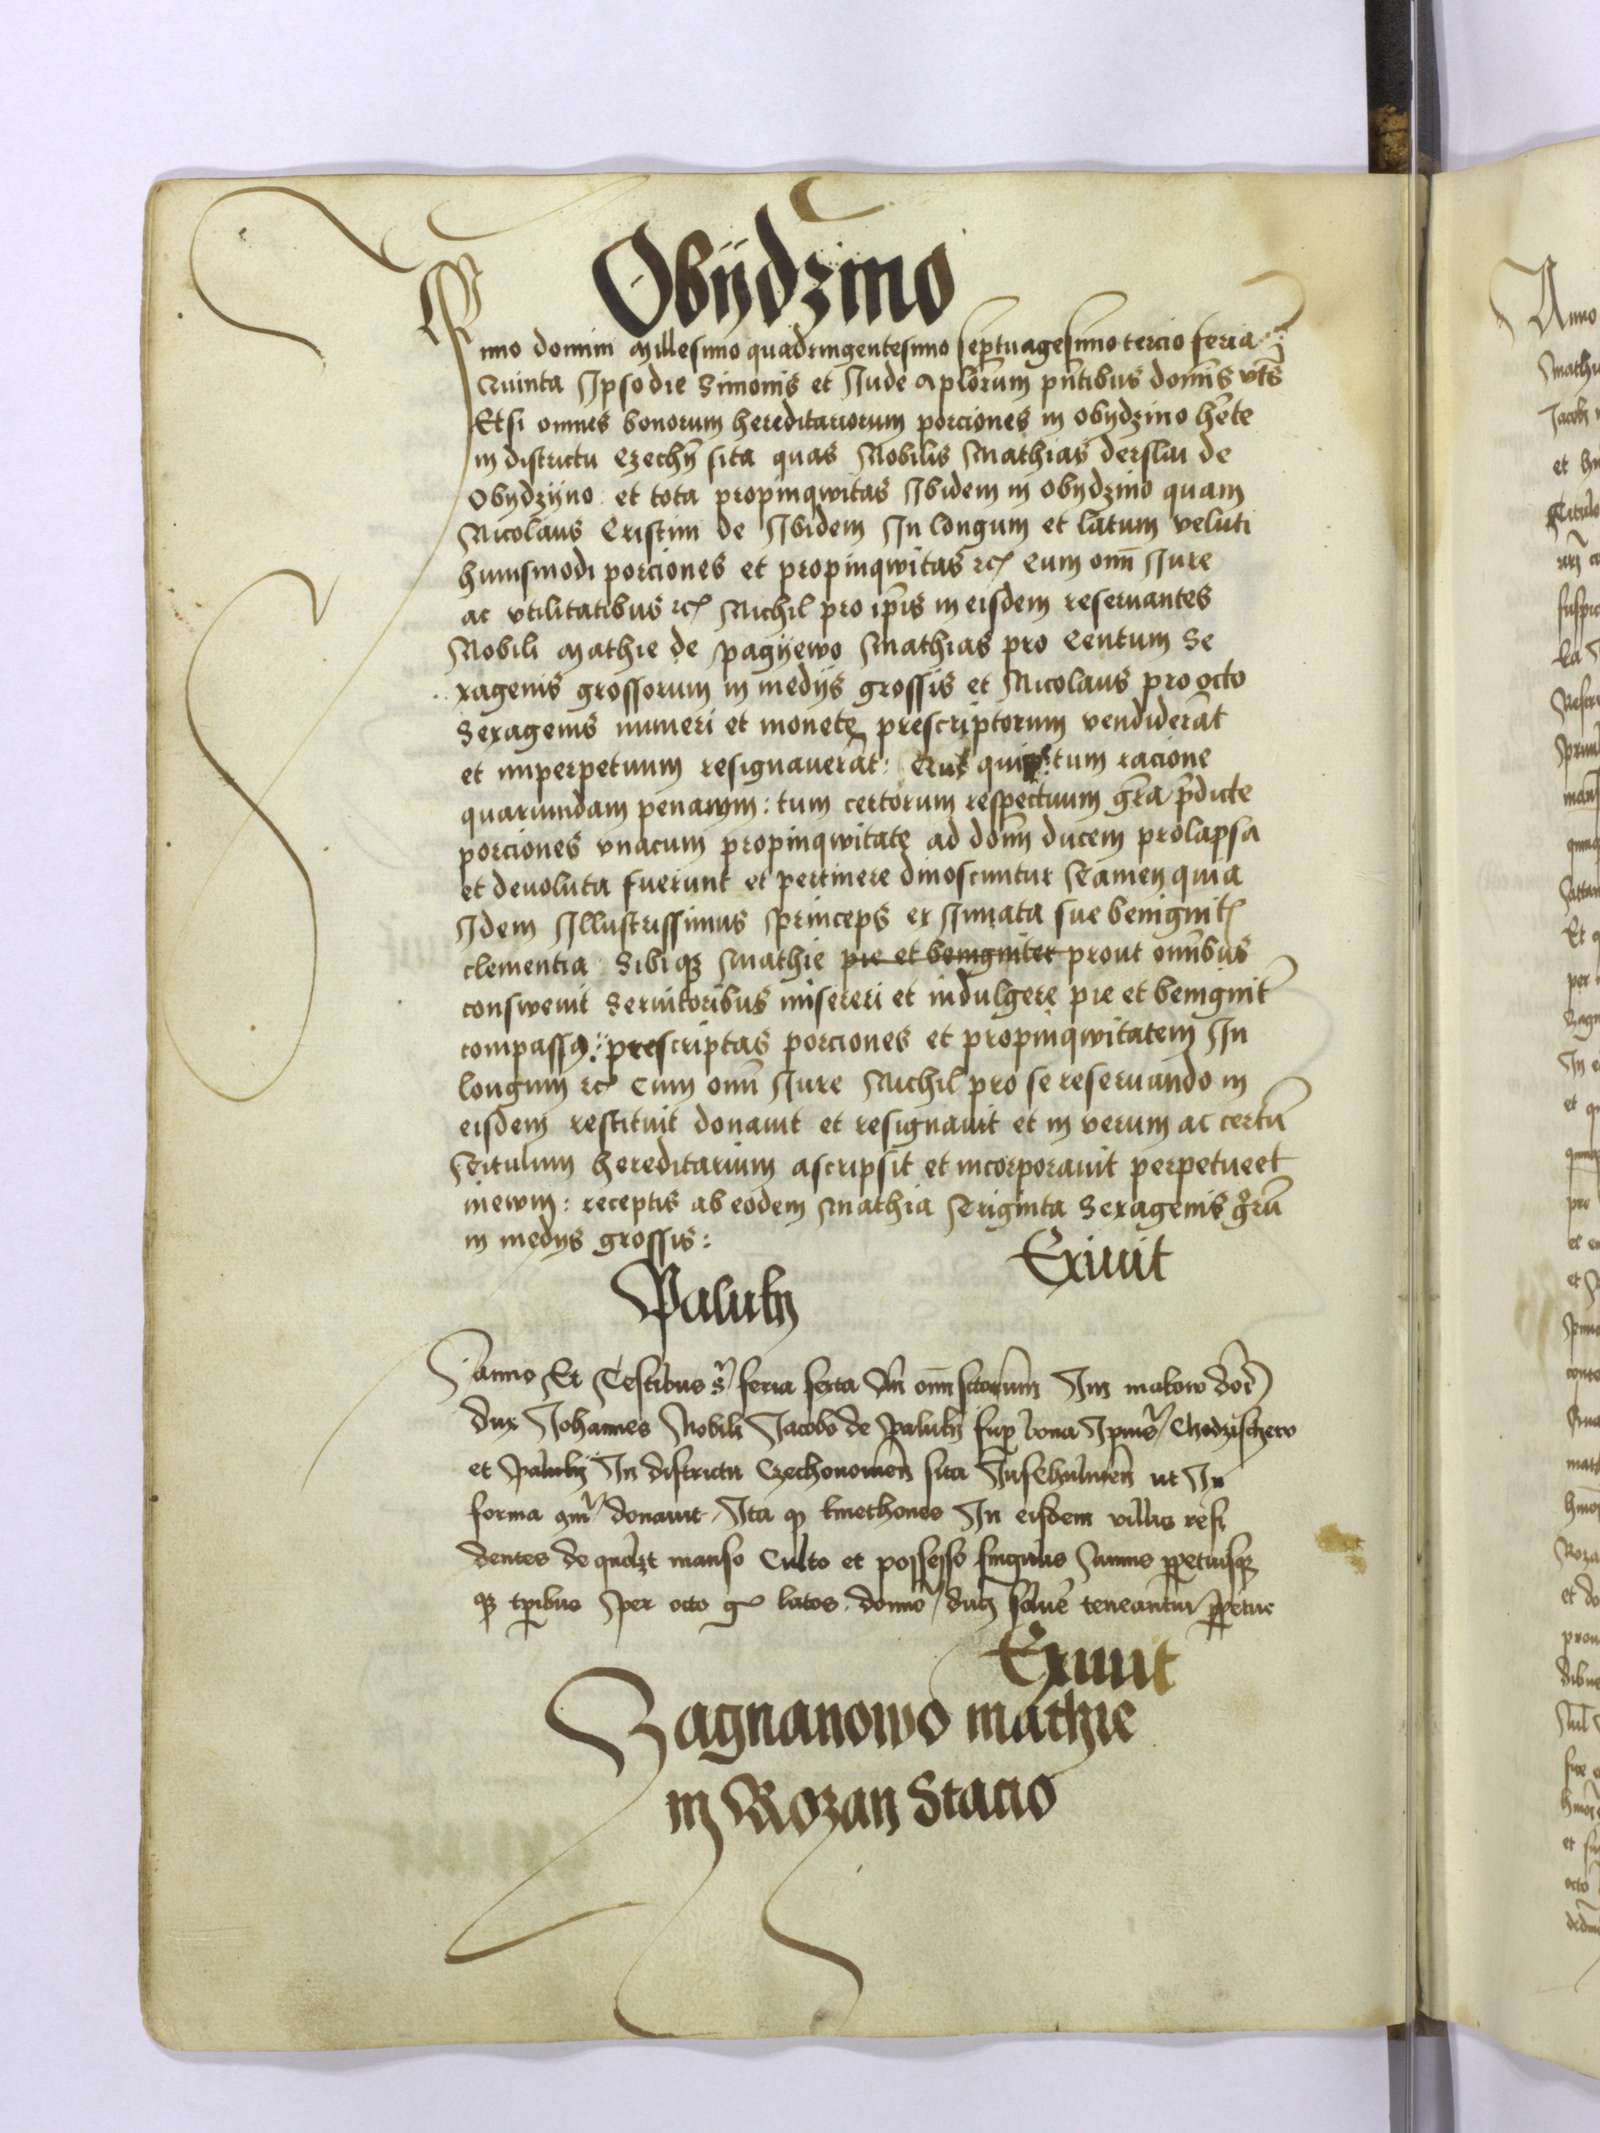 Obÿdzino
Anno domini Millesimo quadringentesimo septuagesimo tercio feria
Quinta Ipso die Simonis et Jude aplorum pntibus domis vts
Etsi omnes bonorum hereditariorum porciones in obydzino hete
in districtu Czechn sita quas Nobilis Mathias derslai de
Obydzijno et tota propinqwitas Ibidem in obydzino quam
Nicolaus Cristini de Ibidem In longum et latum veluti
huiusmodi porciones et propinqwitas etc cum omi Jure
ac vtilitatibus etc Nichil pro ipis in eisdem reservantes
Nobili Mathie de pagyewo Mathias pro Centum Se
xagenis grossorum in medijs grossis et Nicolaus pro octo
Sexagenis numeri et monete prescriptorum vendiderat
et inperpetuum resignauerat: tum racione
quarundam penarum: tum certorum respectuum gra pdicte
porciones vnacum propinqwitate ad domi ducem prolapsa
et deuoluta fuerunt et pertinere dinoscuntur Tamen quia
Idem Illustrissimus princeps ex Innata sue benignit
clementia Sibiqz Mathie pie et benigniter prout omibus
conswevit Seruitoribus misereri et indulgere pie et benignit
compassus prescriptas porciones et propinqwitatem In
longum etc Cum omi Jure Nichil pro se reseruando in
eisdem restituit donauit et resignauit et in verum ac certu
Titulum hereditarium ascripsit et incorporauit perpetue et
inewm: receptis ab eodem Mathia Triginta Sexagenis gru
in medys grossis:
Exiuit
Paluky
Anno Et Testibus s feria sexta omi sctorum Im makow
dux Johannes Nobili Jacobo de Paluky sup bona Ipius Chodzischewo
et Paluky In districtu Czechonowien sita ut In
forma donauit Ita q kmethones In eisdem villis resi
dentes de manso Culto et possesso singulis Annis ppetuisqz
tpibus Sper octo gr latos domno duci soluere teneantur ppetue
Exiuit
Zagnanowo mathie
in Rozan Stacio